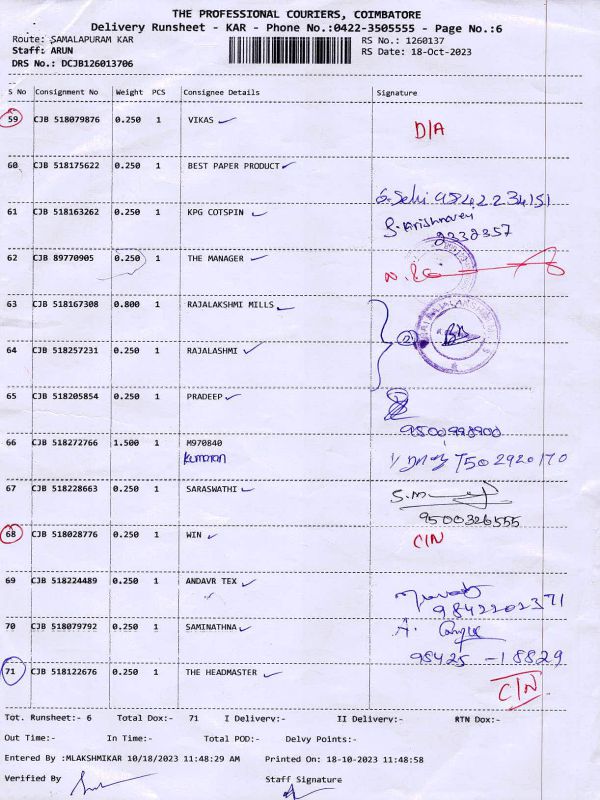 THE PROFESSIONAL COURIERS, COIMBATORE
Delivery Runsheet - KAR - Phone No.:0422-3505555 - Page No.:6
Route: SAMALAPURAM KAR RS No.: 1260137
Staff: ARUN RS Date: 18-Oct-2023
DRS No.: DCJB126013706
S No Consignment No Weight PCS Consignee Details Signature
59 CJB 518079876 0.250 1 VIKAS D/A
60 CJB 518175622 0.250 1 BEST PAPER PRODUCT
9842234151
61 CJB 518163262 0.250 1 KPG COTSPIN
9338357
62 CJB 89770905 0.250 1 THE MANAGER
63 CJB 518167308 0.800 1 RAJALAKSHMI MILLS
64 CJB 518257231 0.250 1 RAJALASHMI
65 CJB 518205854 0.250 1 PRADEEP
66 CJB 518272766 1.500 1 M970840
Kumaran
67 CJB 518228663 0.250 1 SARASWATHI
9500326555
68 CJB 518028776 0.250 1 WIN C/N
69 CJB 518224489 0.250 1 ANDAVR TEX
9842202371
70 CJB 518079792 0.250 1 SAMINATHNA
98425 -18829
71 CJB 518122676 0.250 1 THE HEADMASTER C/N
Tot. Runsheet:- 6 Total Dox:- 71 I Delivery:- II Delivery:- RTN Dox:-
Out Time:- In Time:- Total POD:- Delvy Points:-
Entered By :MLAKSHMIKAR 10/18/2023 11:48:29 AM Printed On: 18-10-2023 11:48:58
Verified By Staff Signature